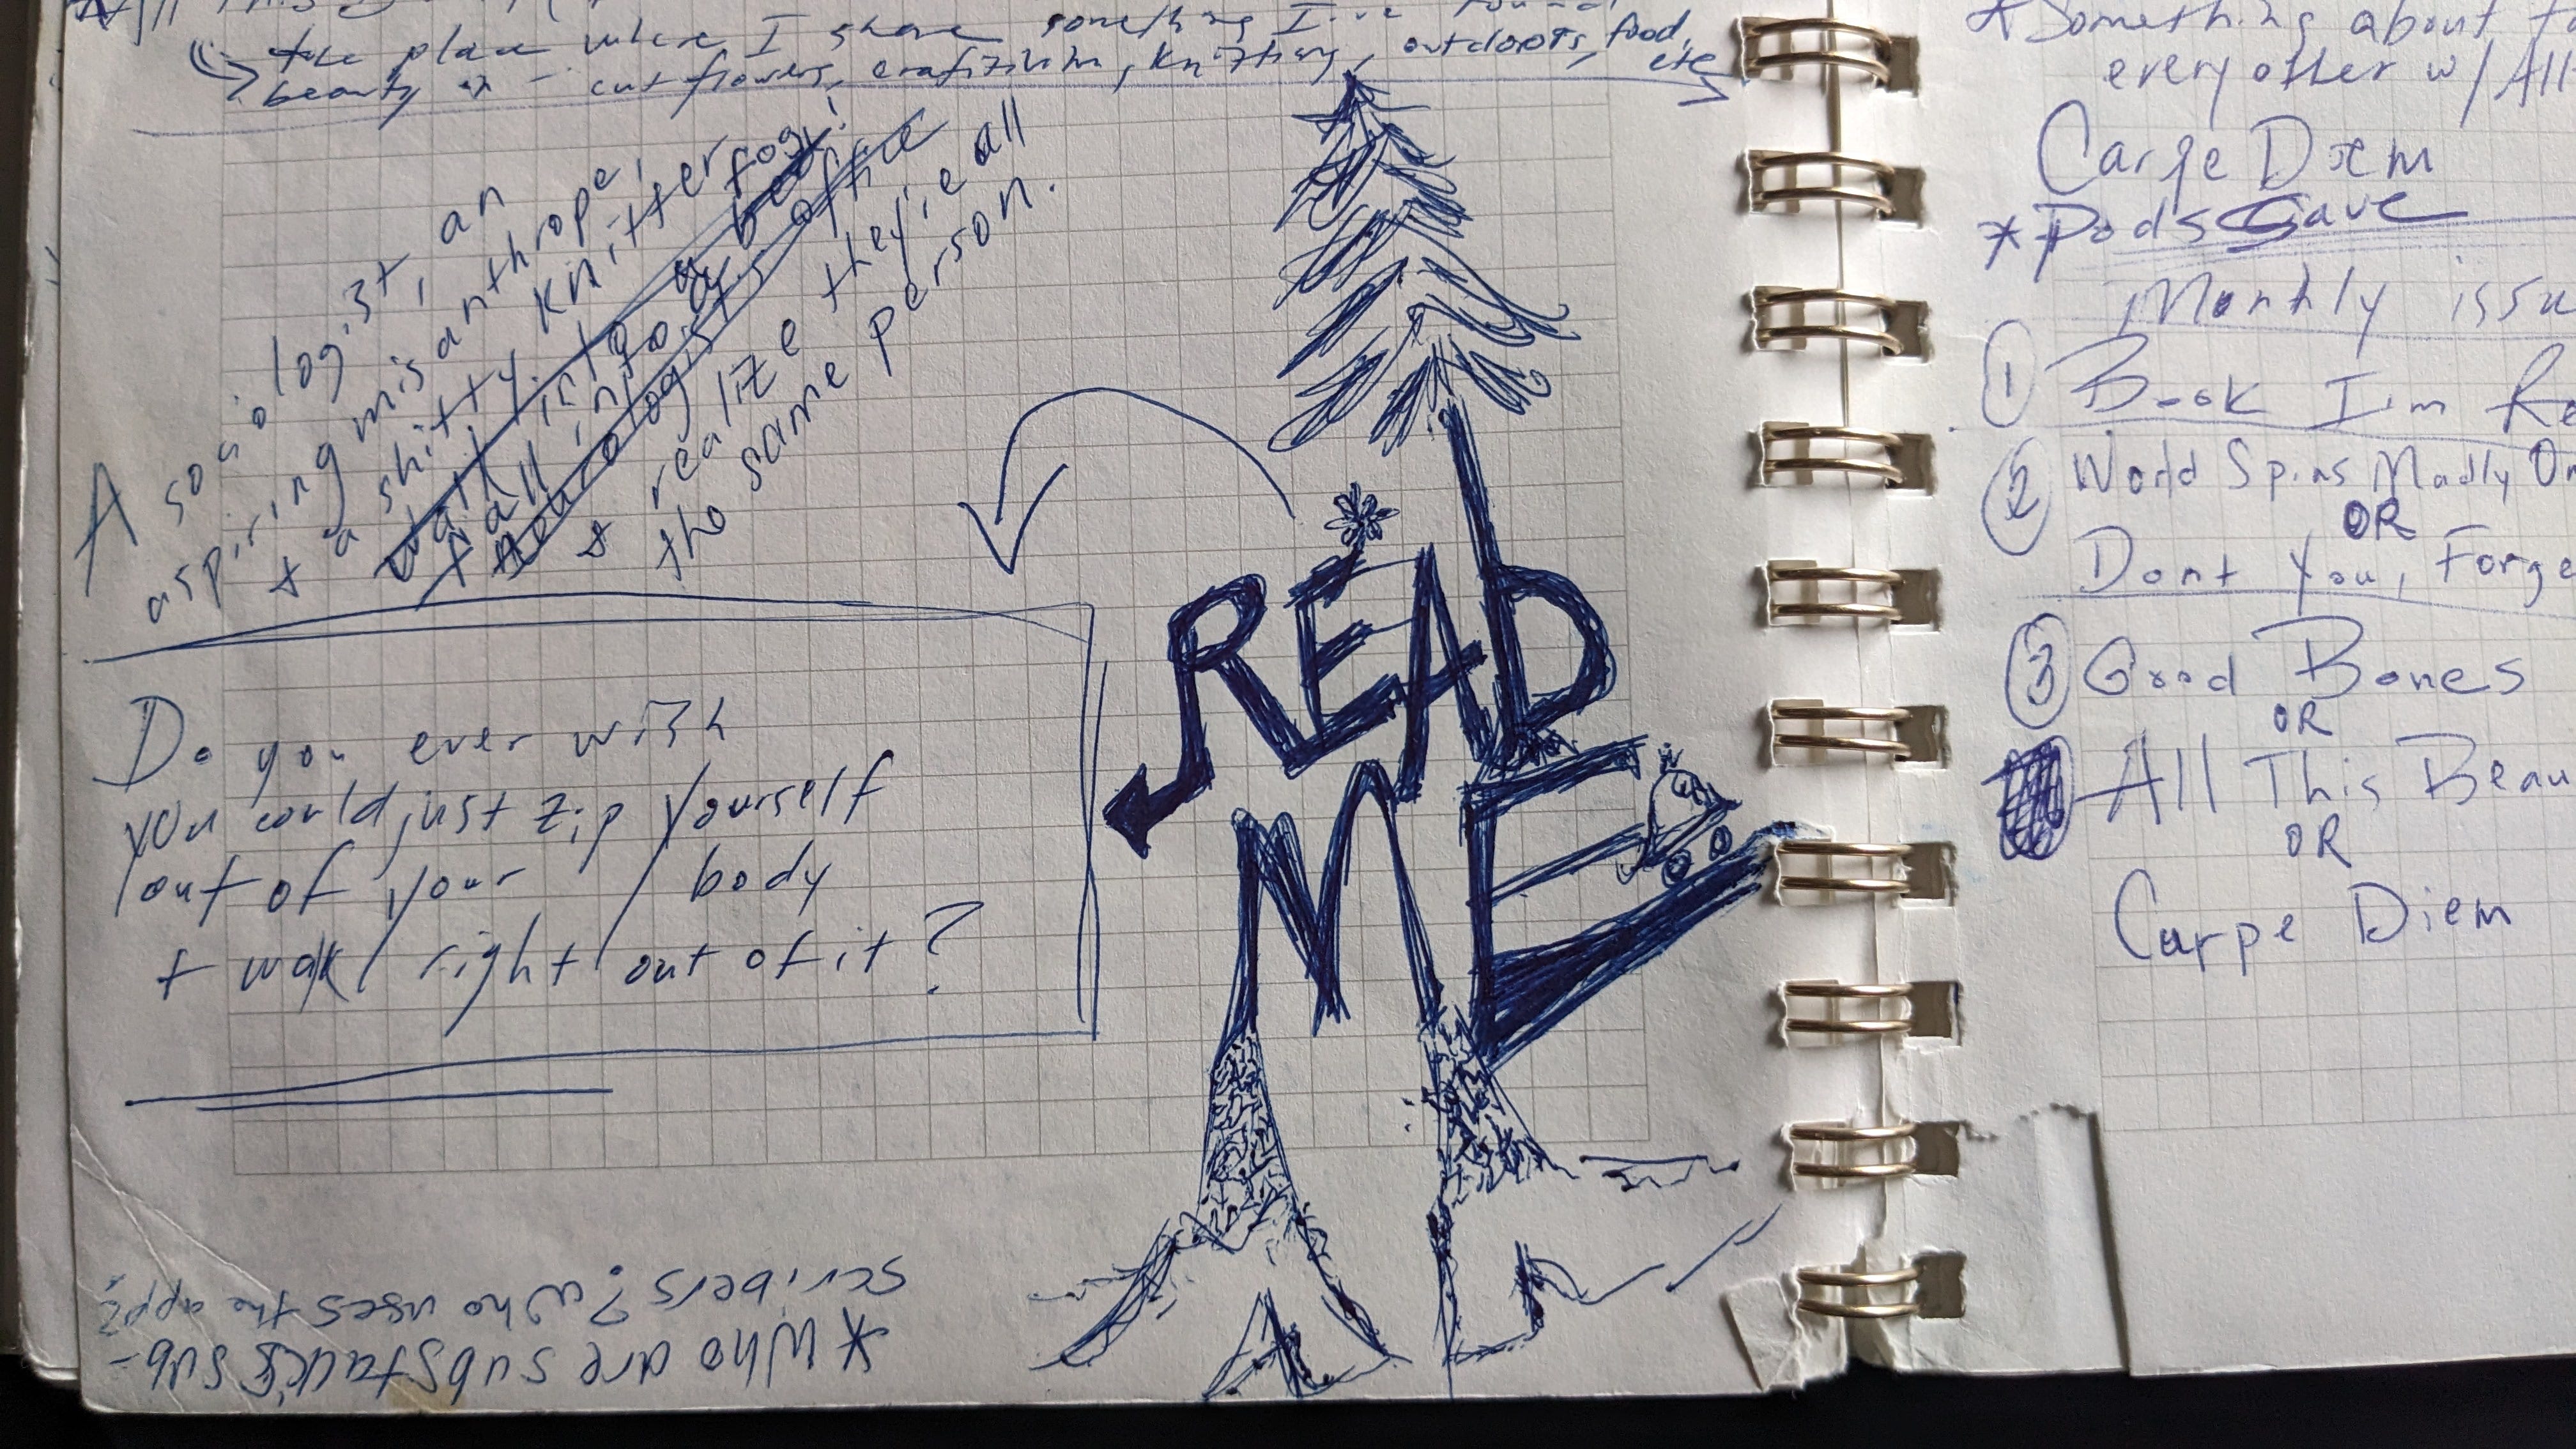 All This
the place where I share something I've found
beauty in – cut flowers, crafting, knitting, outdoors, food, etc
A sociologist, an
aspiring misanthrope,
+ a shitty knitter
walk into a bar
fall into a fog!
neurologist's office
+ realize they're all
the same person.
READ
ME
Do you ever wish
you could just zip yourself
out of your body
+ walk right out of it?
* Who are substack's sub-
scribers? Who uses the app?
* Something about
every other w/ All
Carpe Diem
* Pods Save
Monthly issu
1 Book I'm Re
2 World Spins Madly On
OR
Dont You, Forge
3 Good Bones
OR
All This Beau
OR
Carpe Diem